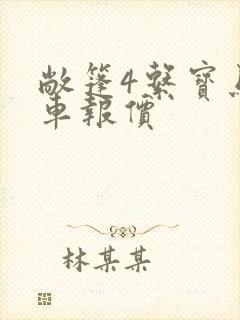 敞篷4繫寶
車報價
林某某